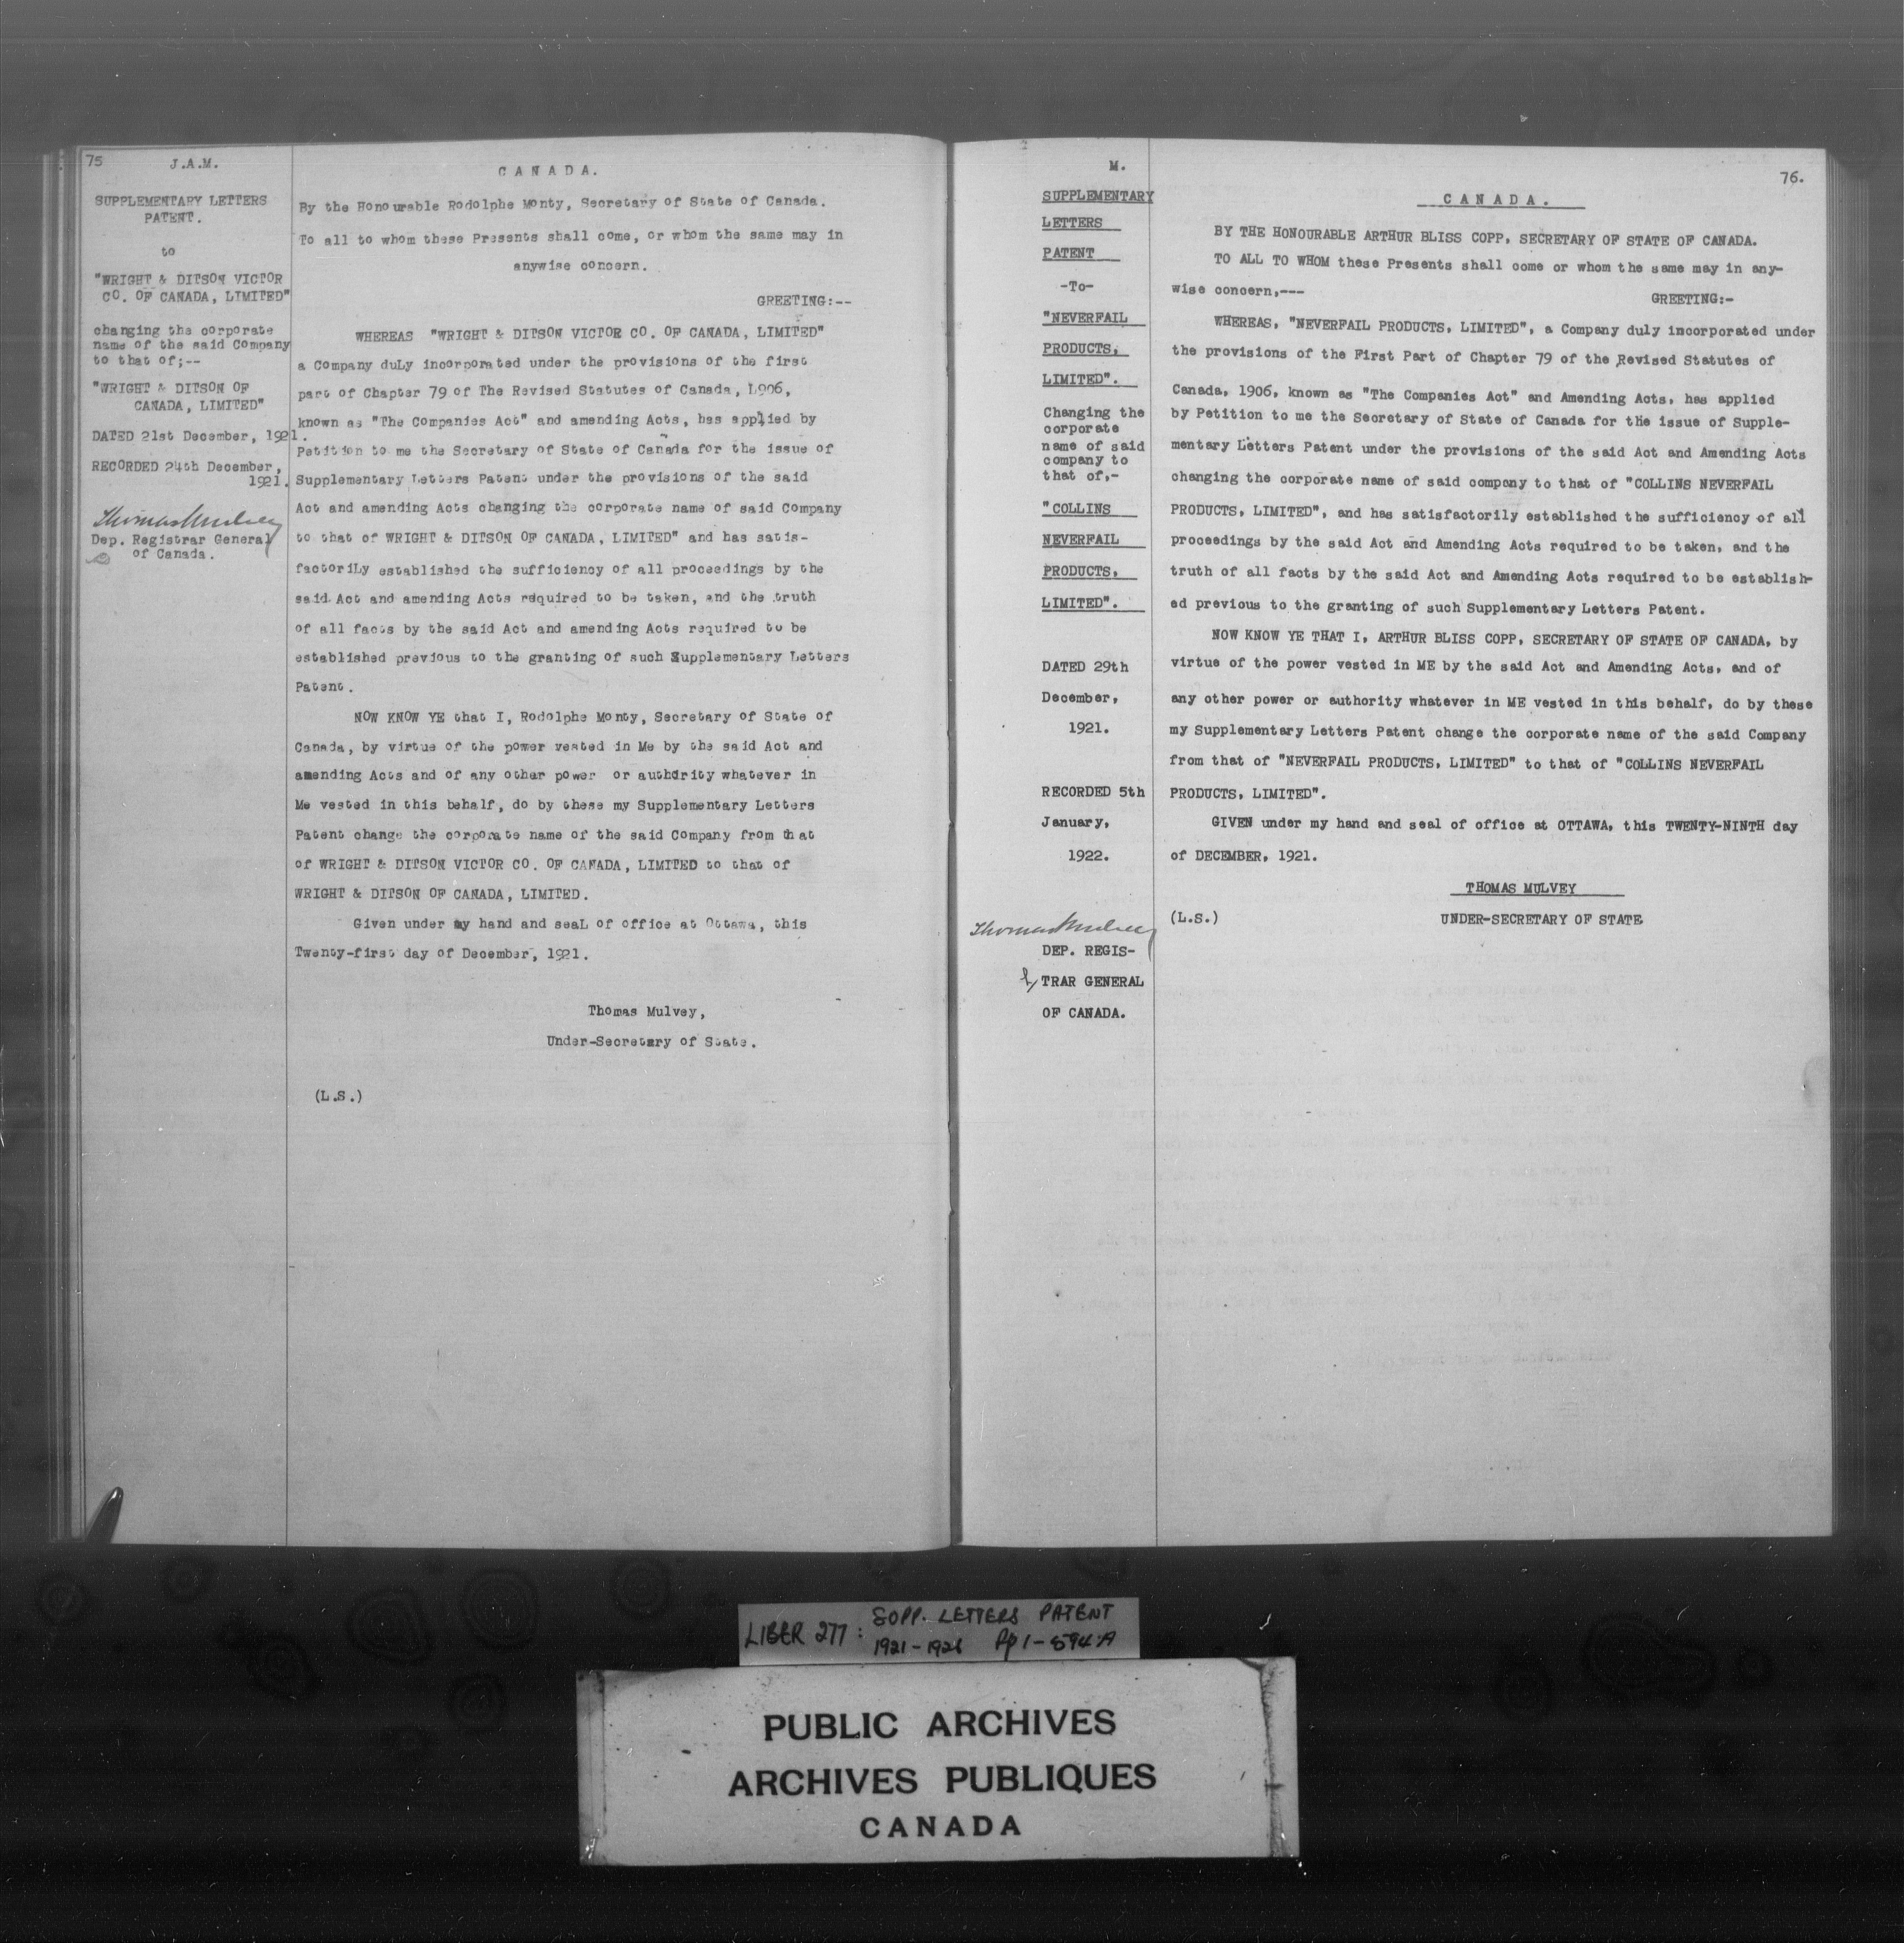 75
J.A.M.
SUPPLEMENTARY LETTERS
PATENT.
to
"WRIGHT & DITSON VICTOR
CO. OF CANADA, LIMITED"
changing the corporate
name of the said Company
to that of;--
"WRIGHT & DITSON OF
CANADA, LIMITED"
DATED 21st December, 1921.
RECORDED 24th December,
1921.
Thomas Mulvey
Dep. Registrar General
of Canada.
CANADA.
By the Honourable Rodolphe Monty, Secretary of State of Canada.
To all to whom these Presents shall come, or whom the same may in
anywise concern.
GREETING:--
WHEREAS "WRIGHT & DITSON VICTOR CO. OF CANADA, LIMITED"
a Company duLy incorporated under the provisions of the first
part of Chapter 79 of The Revised Statutes of Canada, L906,
known as "The Companies Act" and amending Acts, has applied by
Petition to me the Secretary of State of Canada for the issue of
Supplementary Letters Patent under the provisions of the said
Act and amending Acts changing the corporate name of said Company
to that of WRIGHT & DITSON OF CANADA, LIMITED" and has satis-
factoriLy established the sufficiency of all proceedings by the
said Act and amending Acts required to be taken, and the truth
of all facts by the said Act and amending Acts required to be
established previous to the granting of such Supplementary Letters
Patent.
NOW KNOW YE that I, Rodolphe Monty, Secretary of State of
Canada, by virtue of the power vested in Me by the said Act and
amending Acts and of any other power or authority whatever in
Me vested in this behalf, do by these my Supplementary Letters
Patent change the corporate name of the said Company from that
of WRIGHT & DITSON VICTOR CO. OF CANADA, LIMITED to that of
WRIGHT & DITSON OF CANADA, LIMITED.
Given under my hand and seaL of office at Ottawa, this
Twenty-first day of December, 1921.
Thomas Mulvey,
Under-Secretary of State.
(L.S.)
M.
SUPPLEMENTARY
LETTERS
PATENT
-To-
"NEVERFAIL
PRODUCTS,
LIMITED".
Changing the
corporate
name of said
company to
that of,-
"COLLINS
NEVERFAIL
PRODUCTS,
LIMITED".
DATED 29th
December,
1921.
RECORDED 5th
January,
1922.
Thomas Mulvey
DEP. REGIS-
TRAR GENERAL
OF CANADA.
76.
CANADA.
BY THE HONOURABLE ARTHUR BLISS COPP, SECRETARY OF STATE OF CANADA.
TO ALL TO WHOM these Presents shall come or whom the same may in any-
wise concern,---
GREETING:-
WHEREAS, "NEVERFAIL PRODUCTS, LIMITED", a Company duly incorporated under
the provisions of the First Part of Chapter 79 of the Revised Statutes of
Canada, 1906, known as "The Companies Act" and Amending Acts, has applied
by Petition to me the Secretary of State of Canada for the issue of Supple-
mentary Letters Patent under the provisions of the said Act and Amending Acts
changing the corporate name of said company to that of "COLLINS NEVERFAIL
PRODUCTS, LIMITED", and has satisfactorily established the sufficiency of all
proceedings by the said Act and Amending Acts required to be taken, and the
truth of all facts by the said Act and Amending Acts required to be establish-
ed previous to the granting of such Supplementary Letters Patent.
NOW KNOW YE THAT I, ARTHUR BLISS COPP, SECRETARY OF STATE OF CANADA, by
virtue of the power vested in ME by the said Act and Amending Acts, and of
any other power or authority whatever in ME vested in this behalf, do by these
my Supplementary Letters Patent change the corporate name of the said Company
from that of "NEVERFAIL PRODUCTS, LIMITED" to that of "COLLINS NEVERFAIL
PRODUCTS, LIMITED".
GIVEN under my hand and seal of office at OTTAWA, this TWENTY-NINTH day
of DECEMBER, 1921.
THOMAS MULVEY
(L.S.)
UNDER-SECRETARY OF STATE
LIBER 277: SUPP. LETTERS PATENT
1921-1926 Pp 1-594A
PUBLIC ARCHIVES
ARCHIVES PUBLIQUES
CANADA